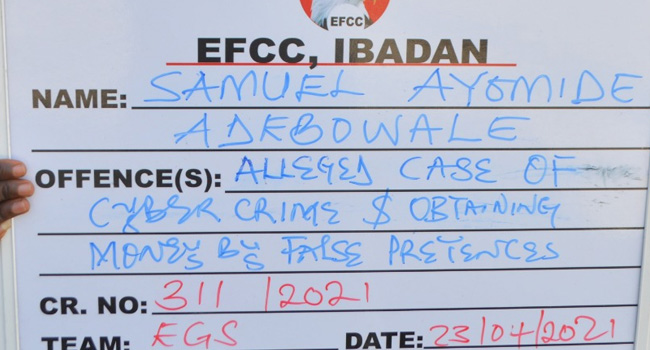 EFCC
EFCC, IBADAN
NAME: SAMUEL AYOMIDE
ADEBOWALE
OFFENCE(S): ALLEGED CASE OF
CYBER CRIME $ OBTAINING
MONEY BY FALSE PRETENCES
CR. NO: 311 /2021
TEAM: EGS DATE: 23/04/2021